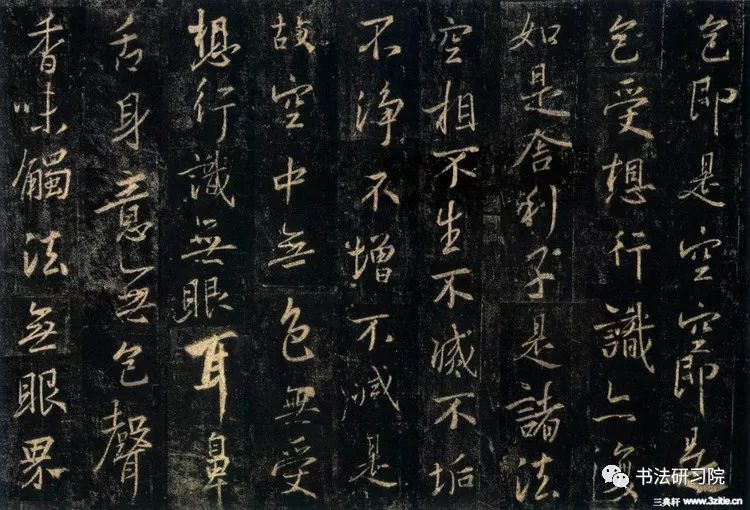 色即是空空即是
色受想行識亦復
如是舍利子是諸法
空相不生不滅不垢
不淨不增不減是
故空中無色無受
想行識無眼耳鼻
舌身意無色聲
香味觸法無眼界
书法研习院
三典轩 www.3zitie.cn